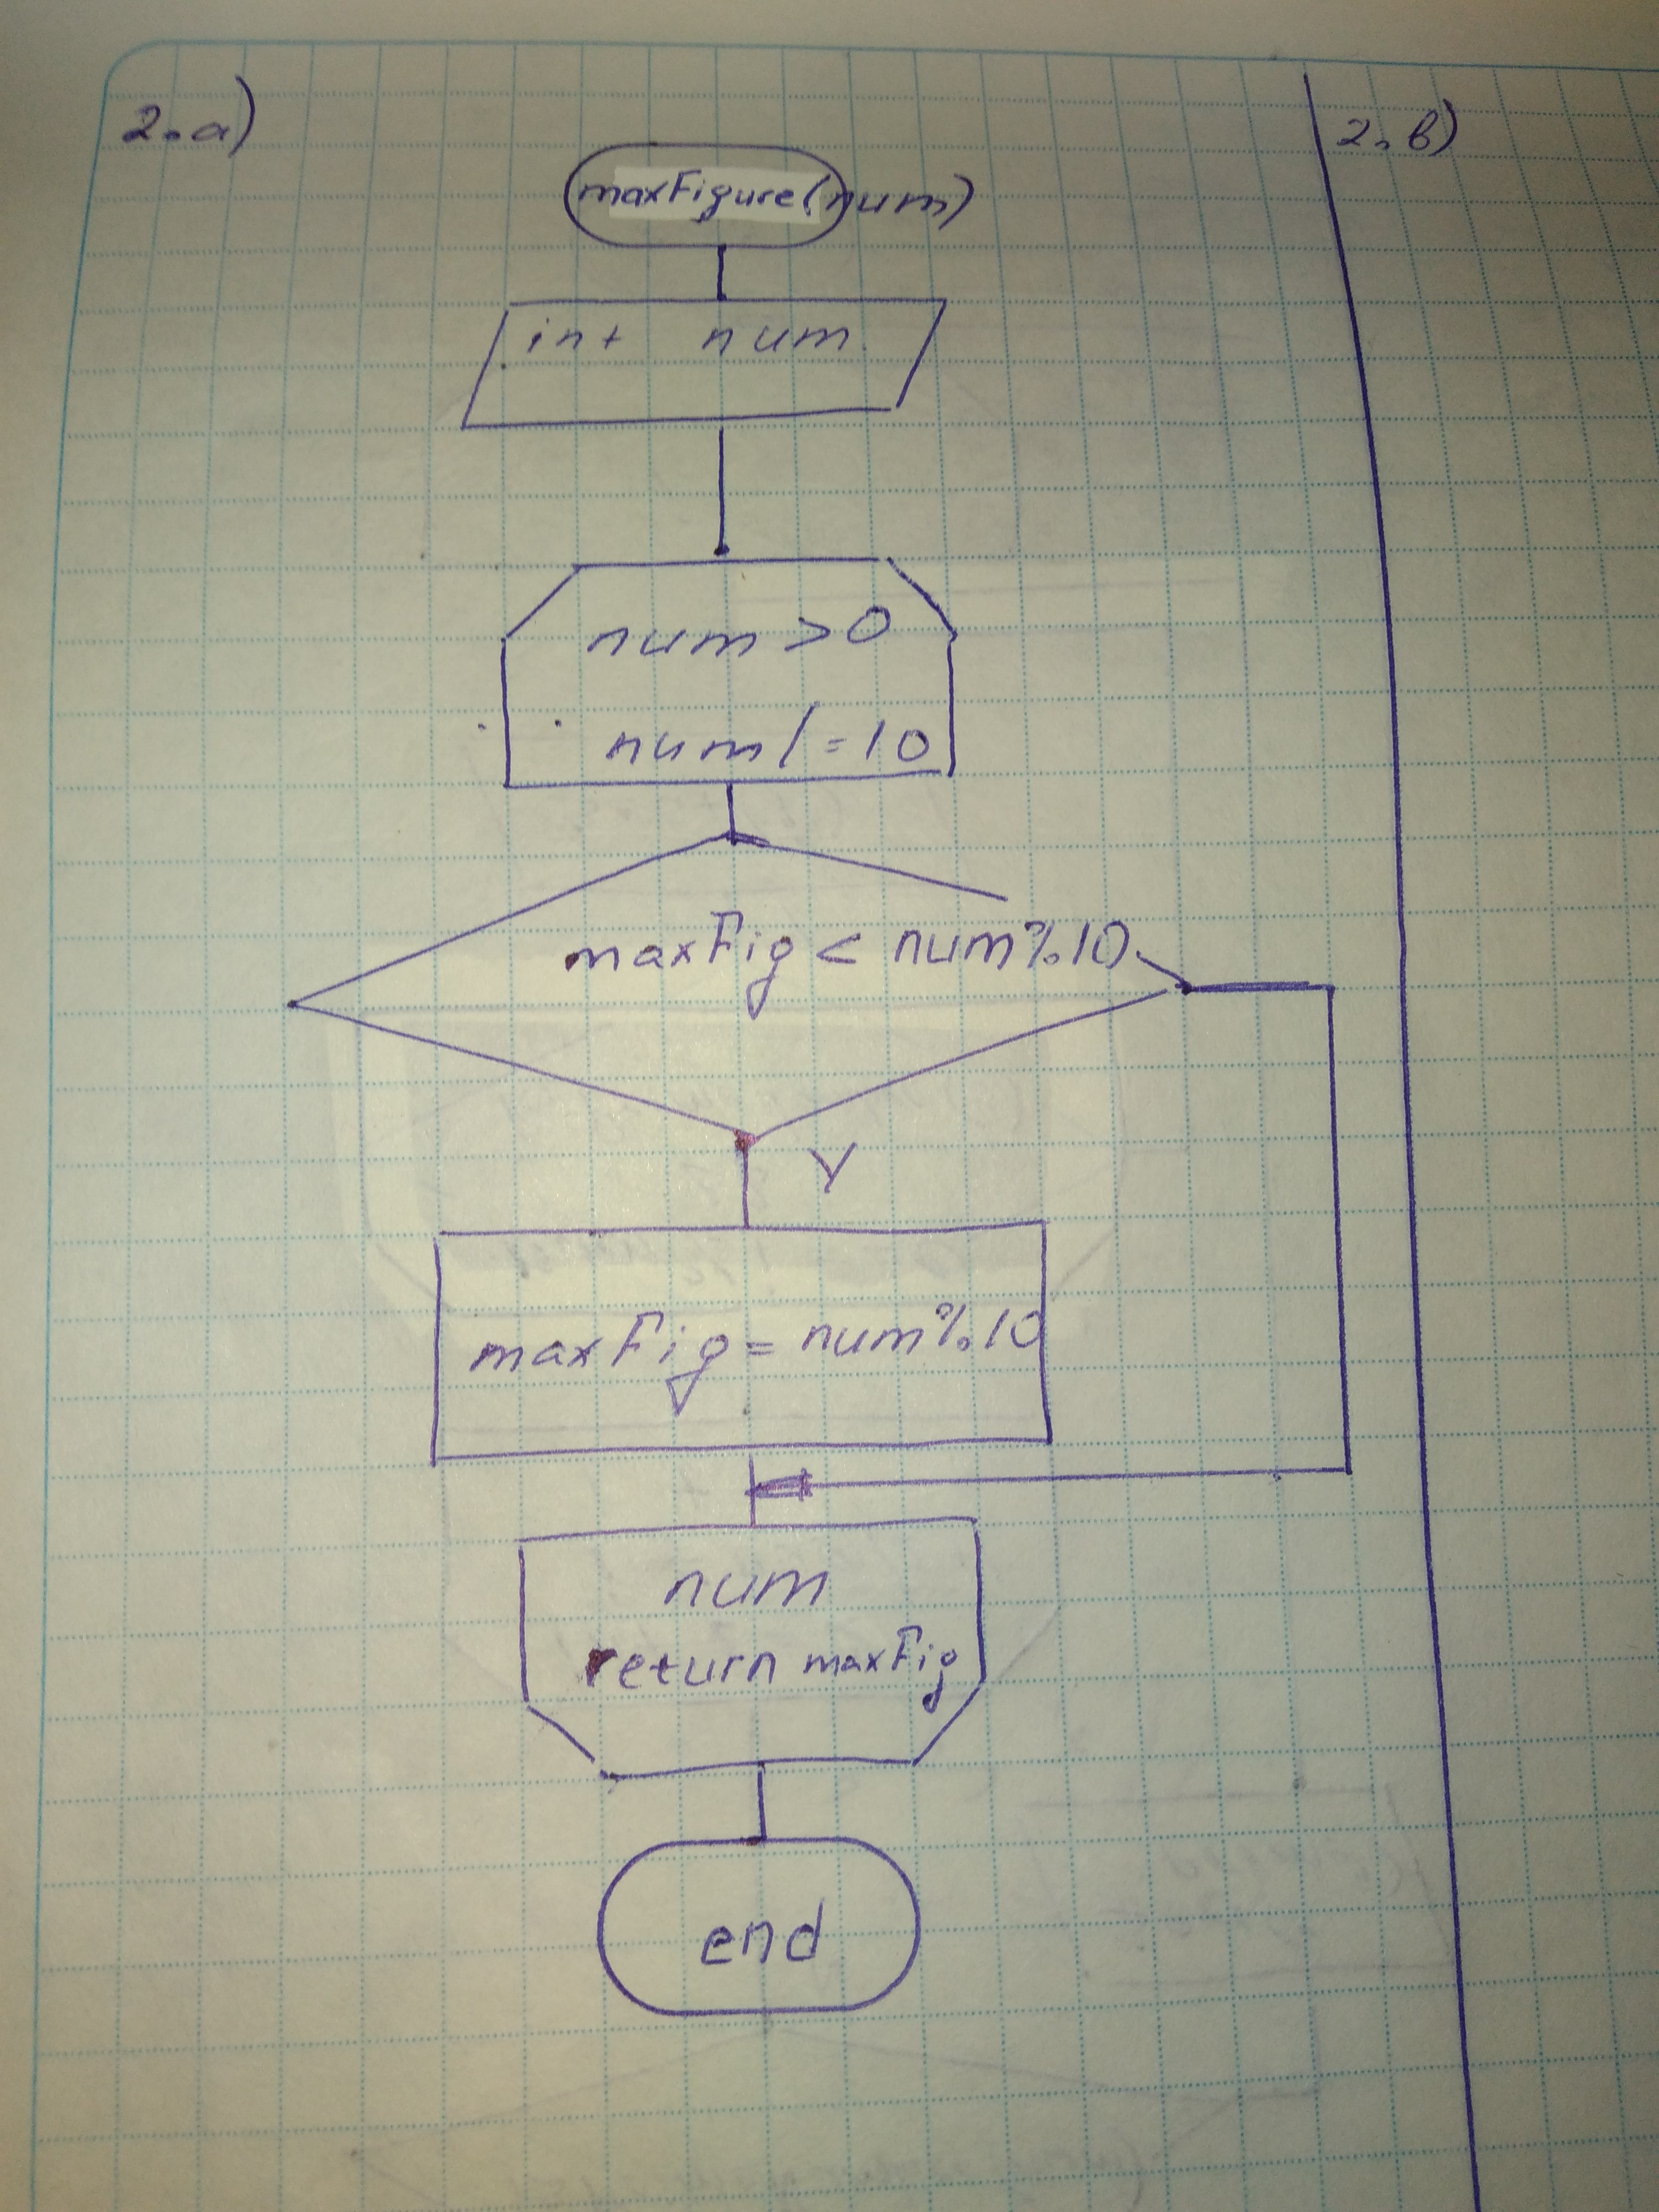 2.a)
2.b)
maxFigure(num)
int num
num >0
num/=10
maxFig < num%10
Y
maxFig = num%10
num
return maxFig
end